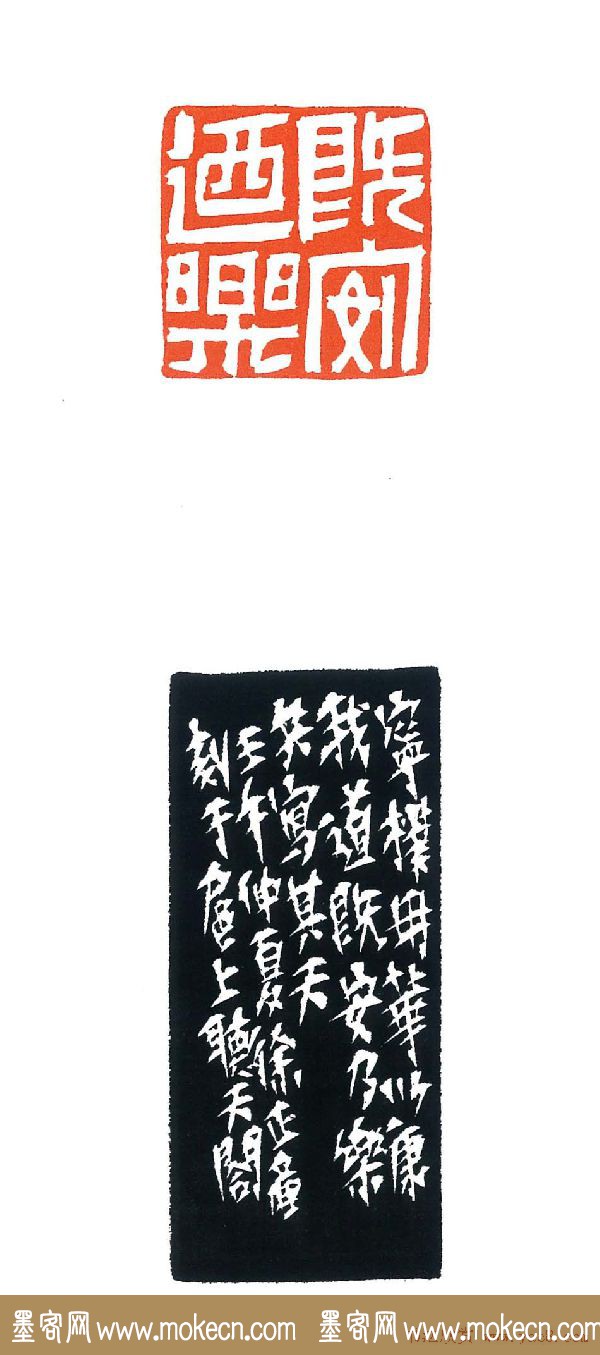 既安
迺樂
寧樸毋華以康
我道既安乃樂
寫其天
壬午仲夏徐正廉
刻于扈上聽天閣
墨客网 www.mokecn.com 墨客网 www.mokecn.com